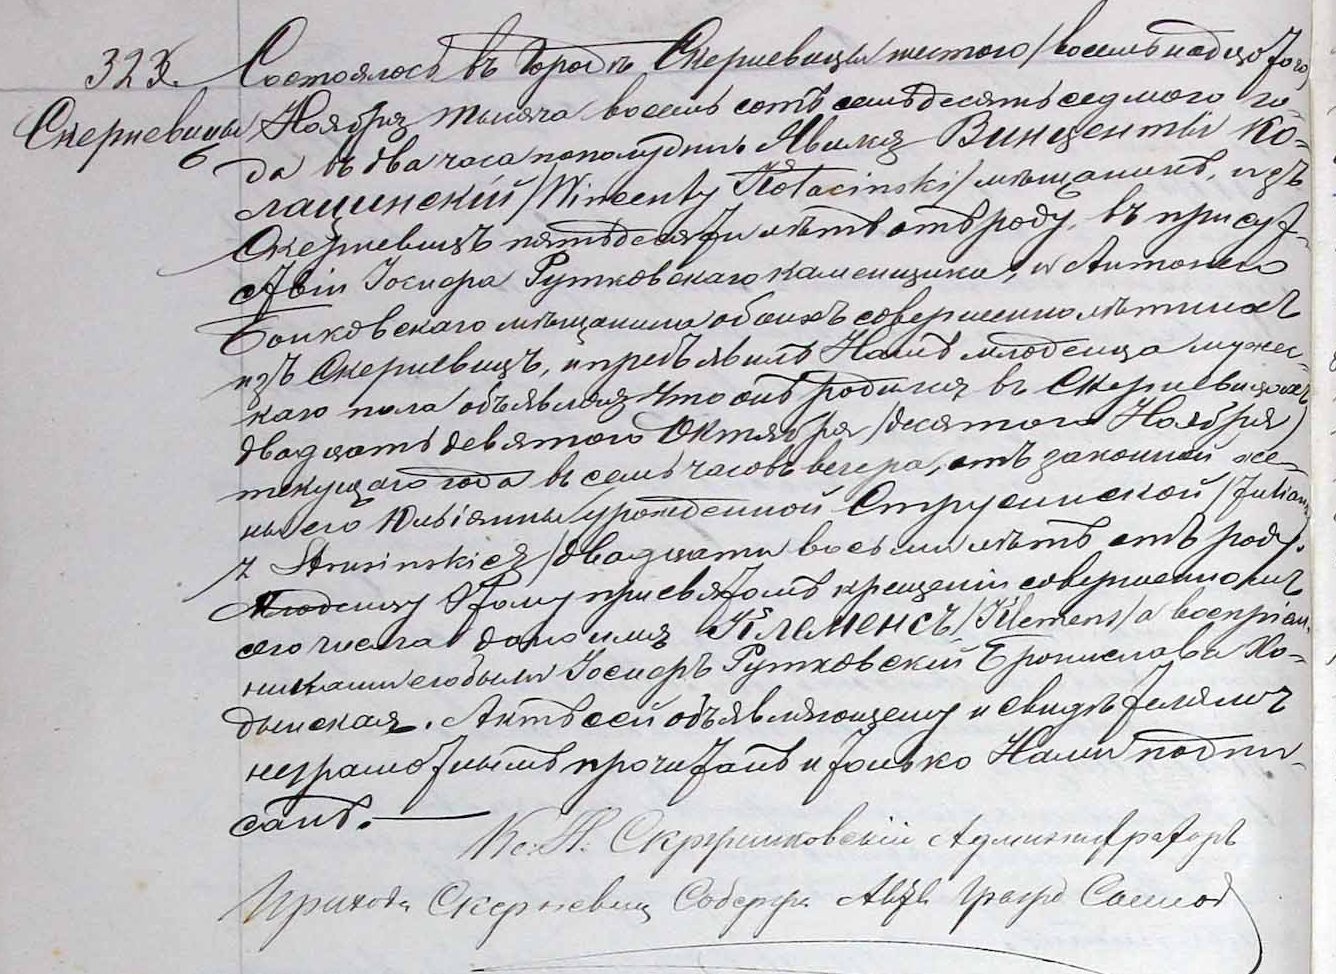 323.
Скерневицы
Состоялось въ Городѣ Скерневицы шестого /восемьнадцатого/
Ноября тысяча восемь сотъ семьдесятъ седмого го-
да въ два часа пополудни. Явился Винценты Ко-
лацинскій /Wincenty Kołacinski/ мѣщанинъ, изъ
Скерневицъ пятьдесяти лѣтъ отъ роду, въ присут-
ствіи Іосифа Рутковскаго каменщика, и Антонего
Бонковскаго мѣщанина обоихъ совершеннолѣтнихъ
изъ Скерневицъ, и предъявилъ Намъ младенца мужес-
каго пола объявляя что онъ родился въ Скерневицахъ
двадцать девятого Октября /десятого Ноября/
текущаго года въ семь часовъ вечера, отъ законной же-
ны его Юліянны урожденной Струсинской /Julianny
z Strusinskich/ двадцати восьми лѣтъ отъ роду.
Младенцу этому при святомъ крещеніи совершенномъ
сего числа дано имя Клеменсъ /Klemens/ а воспріем-
никами его были Іосифъ Рутковскій Брониславa Хо-
дынская. Актъ сей объявляющему и свидѣтелямъ
неграмотнымъ прочитанъ и только Нами подпи-
санъ.
Кс. Н. Скржинковскій Администраторъ
Прихода Скерневиц Содержа Акты Гражд Состоя